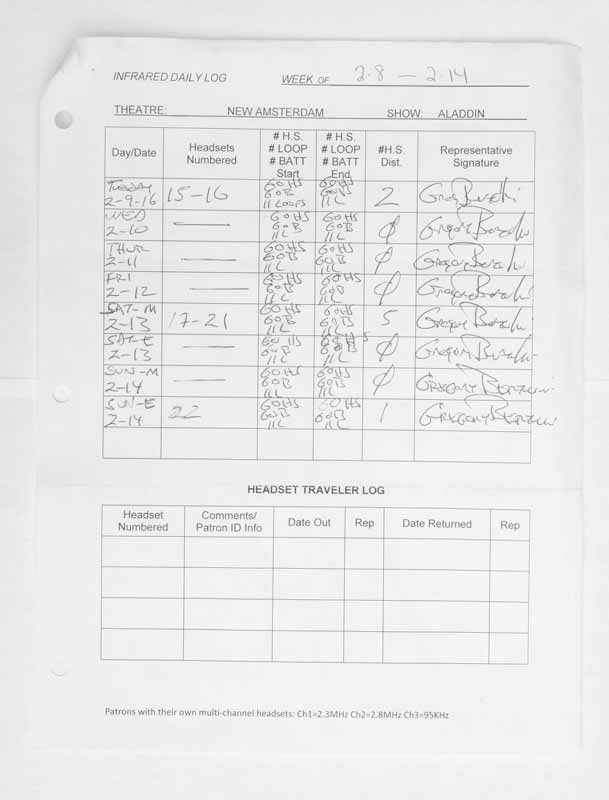 INFRARED DAILY LOG WEEK OF 2.8 — 2.14
THEATRE: NEW AMSTERDAM SHOW: ALADDIN
Day/Date Headsets Numbered # H.S. # LOOP # BATT Start # H.S. # LOOP # BATT End #H.S. Dist. Representative Signature
TUESDAY 2-9-16 15-16 60HS 60B 11 LOOPS 60HS 60B 11L 2
WED 2-10 — 60HS 60B 11L 60HS 60B 11L 0
THUR 2-11 — 60HS 60B 11L 60HS 60B 11L 0
FRI 2-12 — 60HS 60B 11L 60HS 60B 11L 0
SAT-M 2-13 17-21 60HS 60B 11L 60HS 60B 11L 5
SAT-E 2-13 — 60HS 60B 11L 60HS 60B 11L 0
SUN-M 2-14 — 60HS 60B 11L 60HS 60B 11L 0 GREGORY
SUN-E 2-14 22 60HS 60B 11L 60HS 60B 11L 1 GREGORY
HEADSET TRAVELER LOG
Headset Numbered Comments/ Patron ID Info Date Out Rep Date Returned Rep
Patrons with their own multi-channel headsets: Ch1=2.3MHz Ch2=2.8MHz Ch3=95KHz